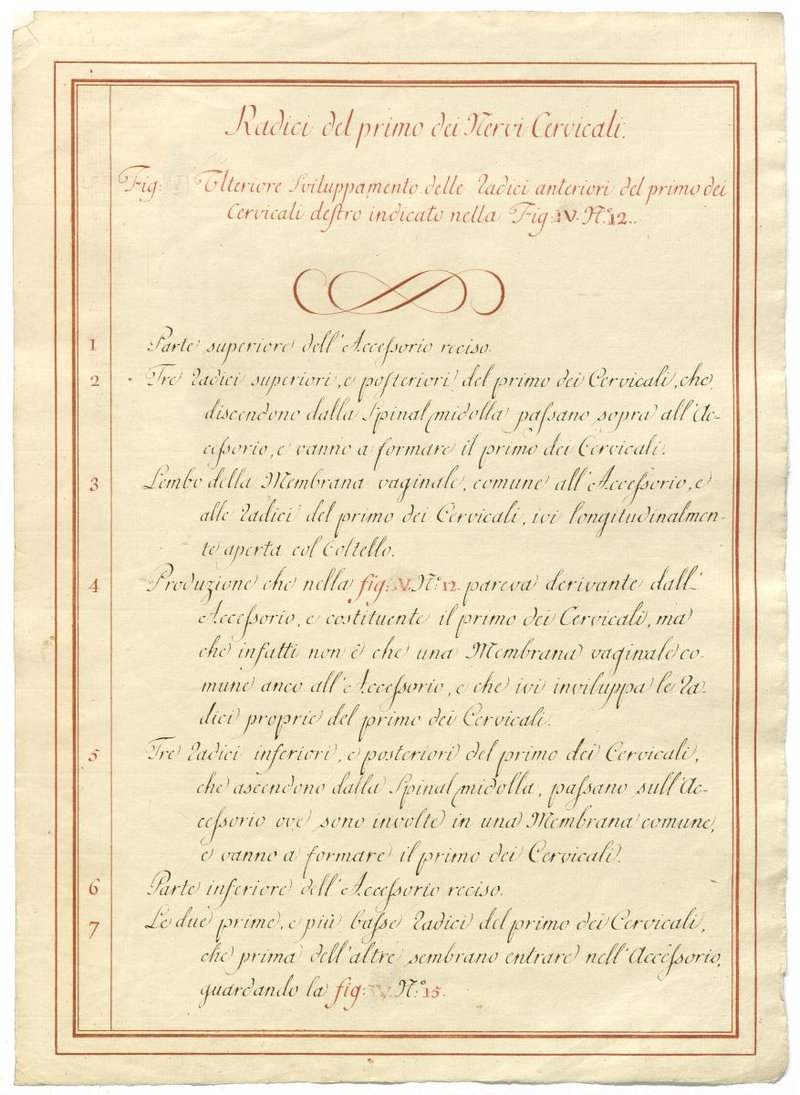 Radici del primo dei Nervi Cervicali.
Fig: Ulteriore Sviluppamento delle Radici anteriori del primo dei
Cervicali destro indicato nella Fig. IV. N.º 12.
1 Parte superiore dell'Accessorio reciso.
2 Tre Radici superiori, e posteriori del primo dei Cervicali, che
discendono dalla Spinal midolla passano sopra all'Ac-
cessorio, e vanno a formare il primo dei Cervicali.
3 Lembo della Membrana vaginale, comune all'Accessorio, e
alle Radici del primo dei Cervicali, ivi longitudinalmen-
te aperta col Coltello.
4 Produzione che nella fig: IV. N.º 12. pareva derivante dall'
Accessorio, e costituente il primo dei Cervicali, ma
che infatti non è che una Membrana vaginale co-
mune anco all'Accessorio, e che ivi inviluppa le Ra-
dici proprie del primo dei Cervicali.
5 Tre Radici inferiori, e posteriori del primo dei Cervicali,
che ascendono dalla Spinal midolla, passano sull'Ac-
cessorio ove sono involte in una Membrana comune,
e vanno a formare il primo dei Cervicali.
6 Parte inferiore dell'Accessorio reciso.
7 Le due prime, e più basse Radici del primo dei Cervicali,
che prima dell'altre sembrano entrare nell'Accessorio,
guardando la fig: IV. N.º 15.